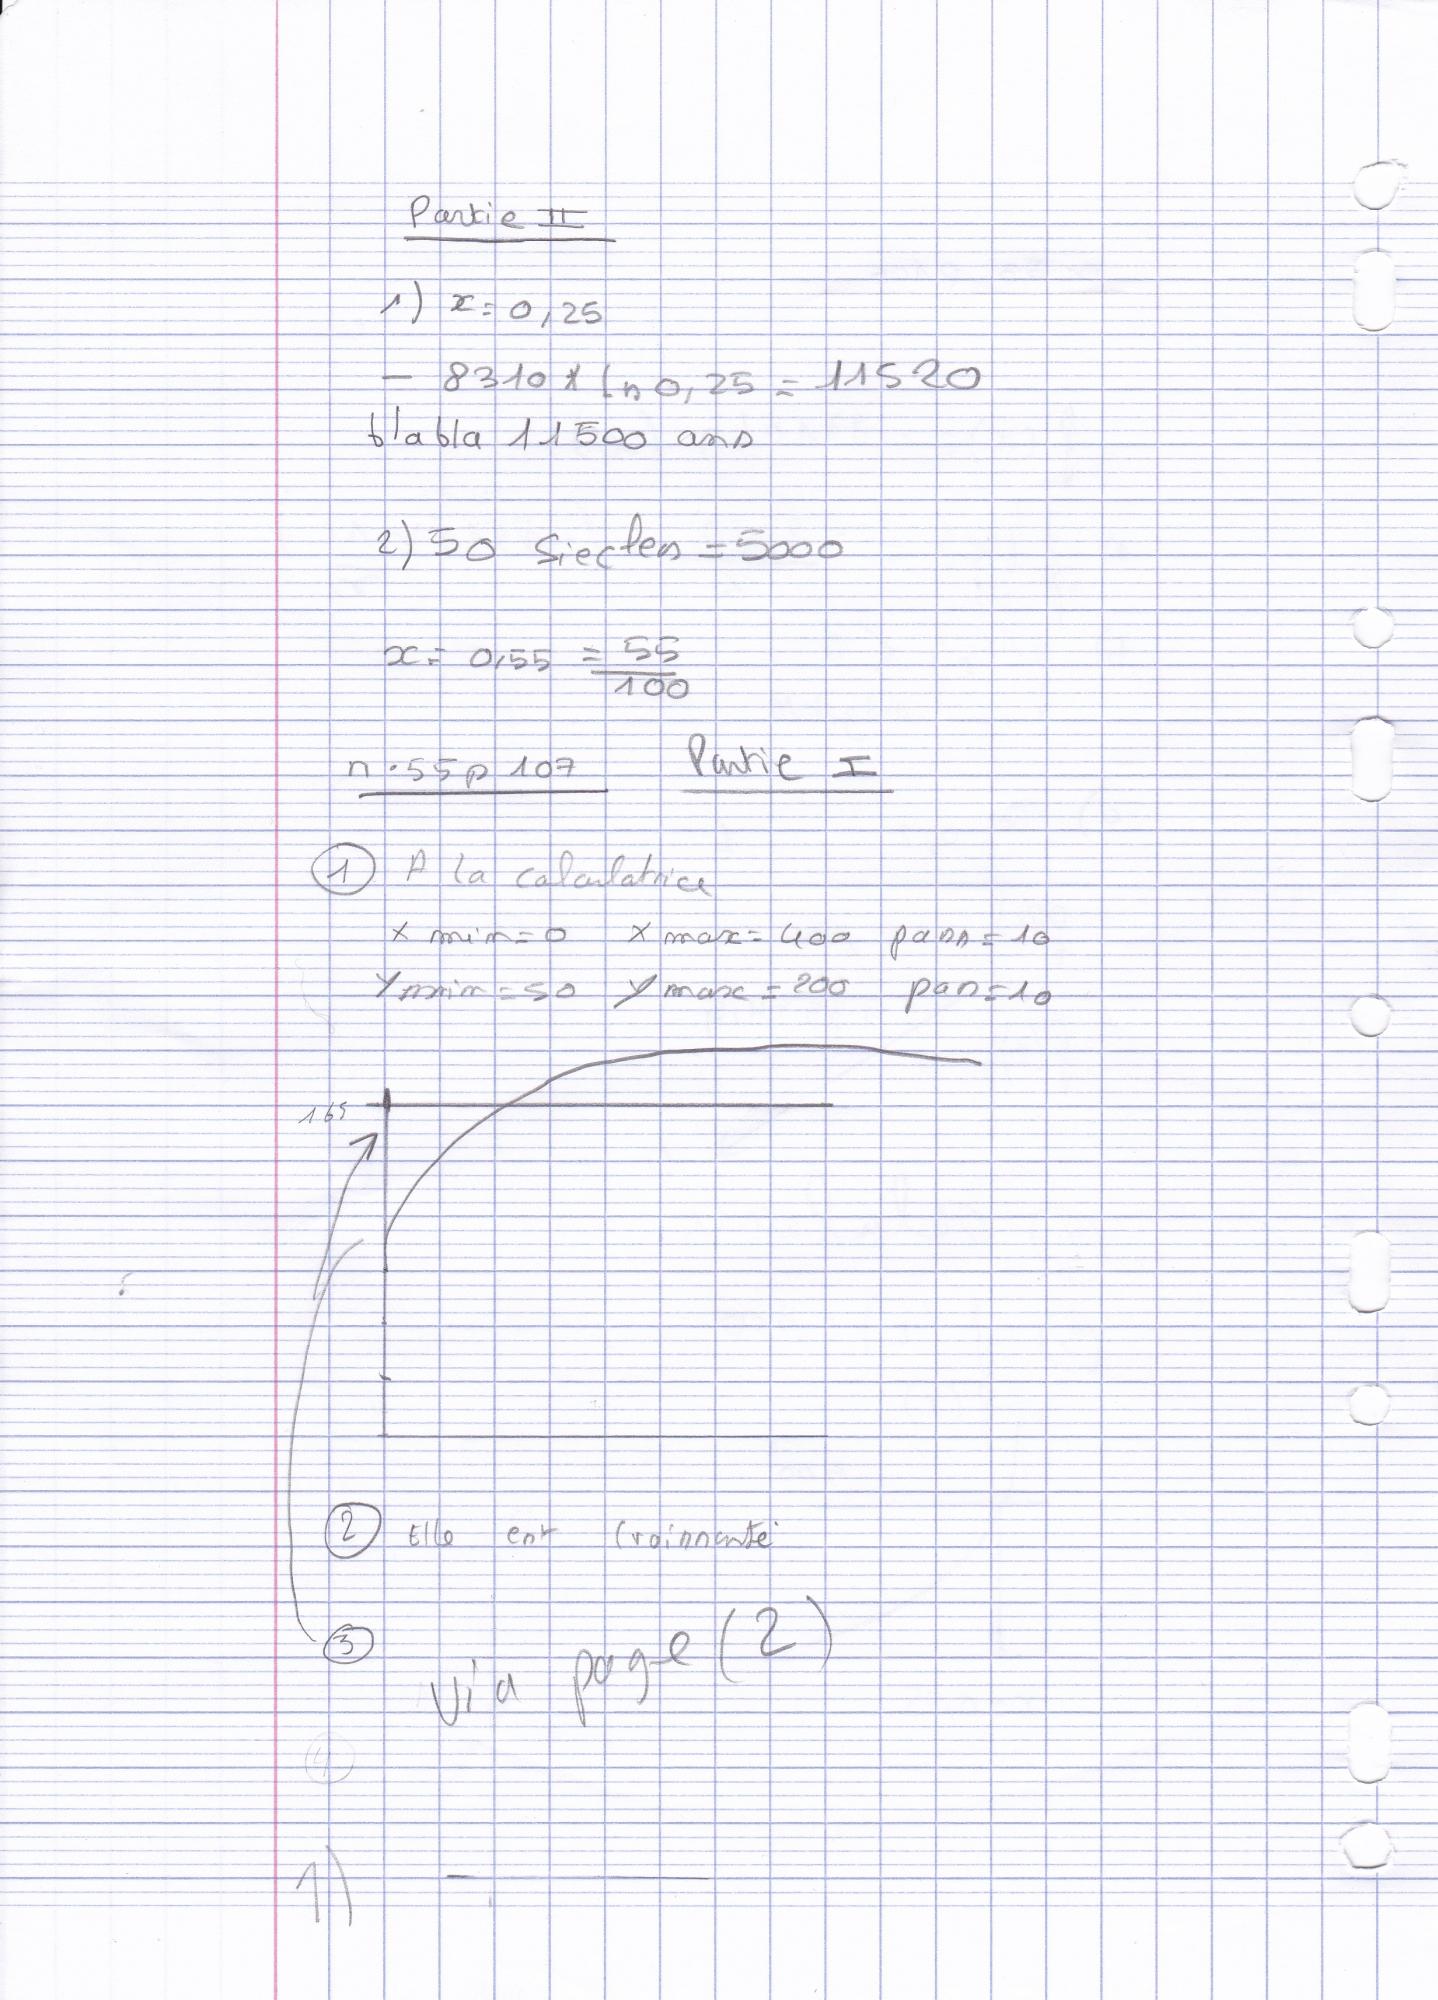 Partie II
1) x = 0,25
- 8310 * ln 0,25 = 11520
blabla 11500 ans
2) 50 siecles = 5000
x = 0,55 = 55/100
n°55p 107 Partie I
1 A la calculatrice
x min = 0 x max = 400 pass = 10
y min = 50 y max = 200 pas = 10
165
2 Elle est croissante
3 via page (2)
4
1)